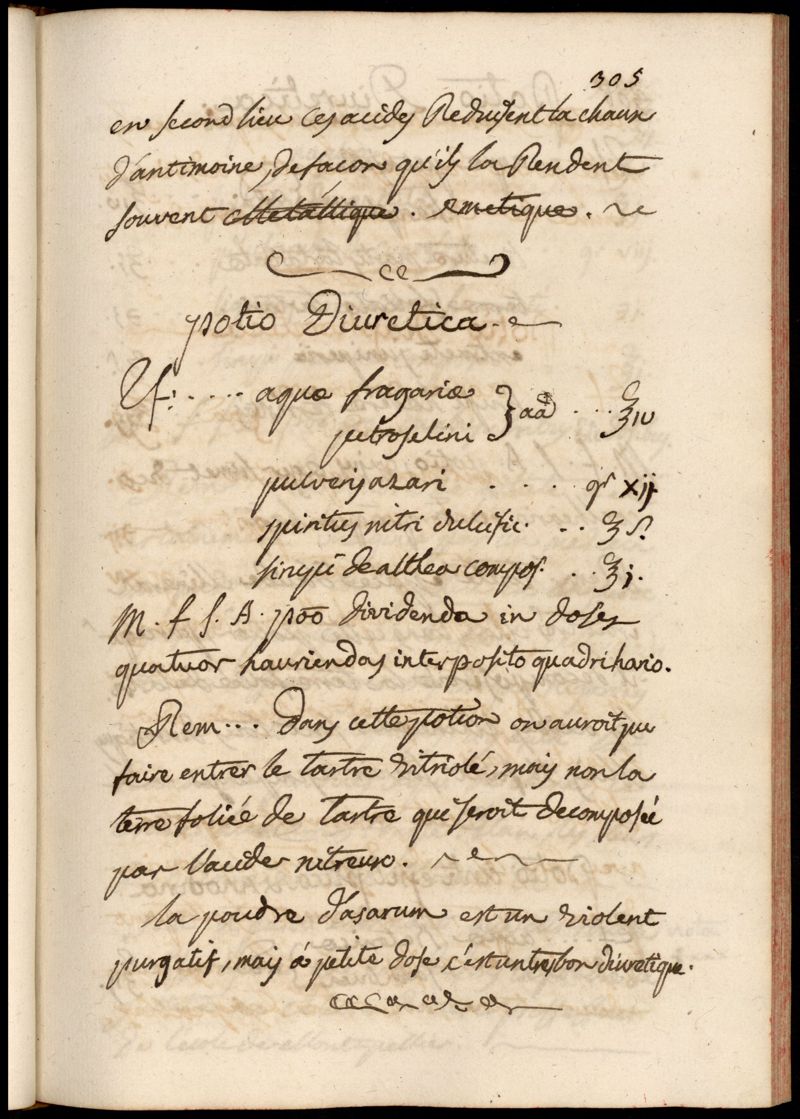 305
en second lieu ces acides Reduisent la chaux
d'antimoine, de facon qu'ils la Rendent
souvent Metállique. emetique.
potio Diuretica.
♃: .... aquæ fragariæ } aã ... ℥iv
petroselini
pulveris azari .... gr xij
spiritus nitri dulcific. .. ʒ ß.
sirupi de althea compos. .. ℥j.
M. f. S. A. poõ dividenda in doses
quatuor hauriendas interposito quadrihario.
Rem... Dans cette potion on auroit pu
faire entrer le tartre vitriolé, mais non la
terre foliée de tartre qui seroit decomposée
par l'acide nitreux.
la poudre d'asarum est un violent
purgatif, mais á petite dose c'est un tres bon diuretique.